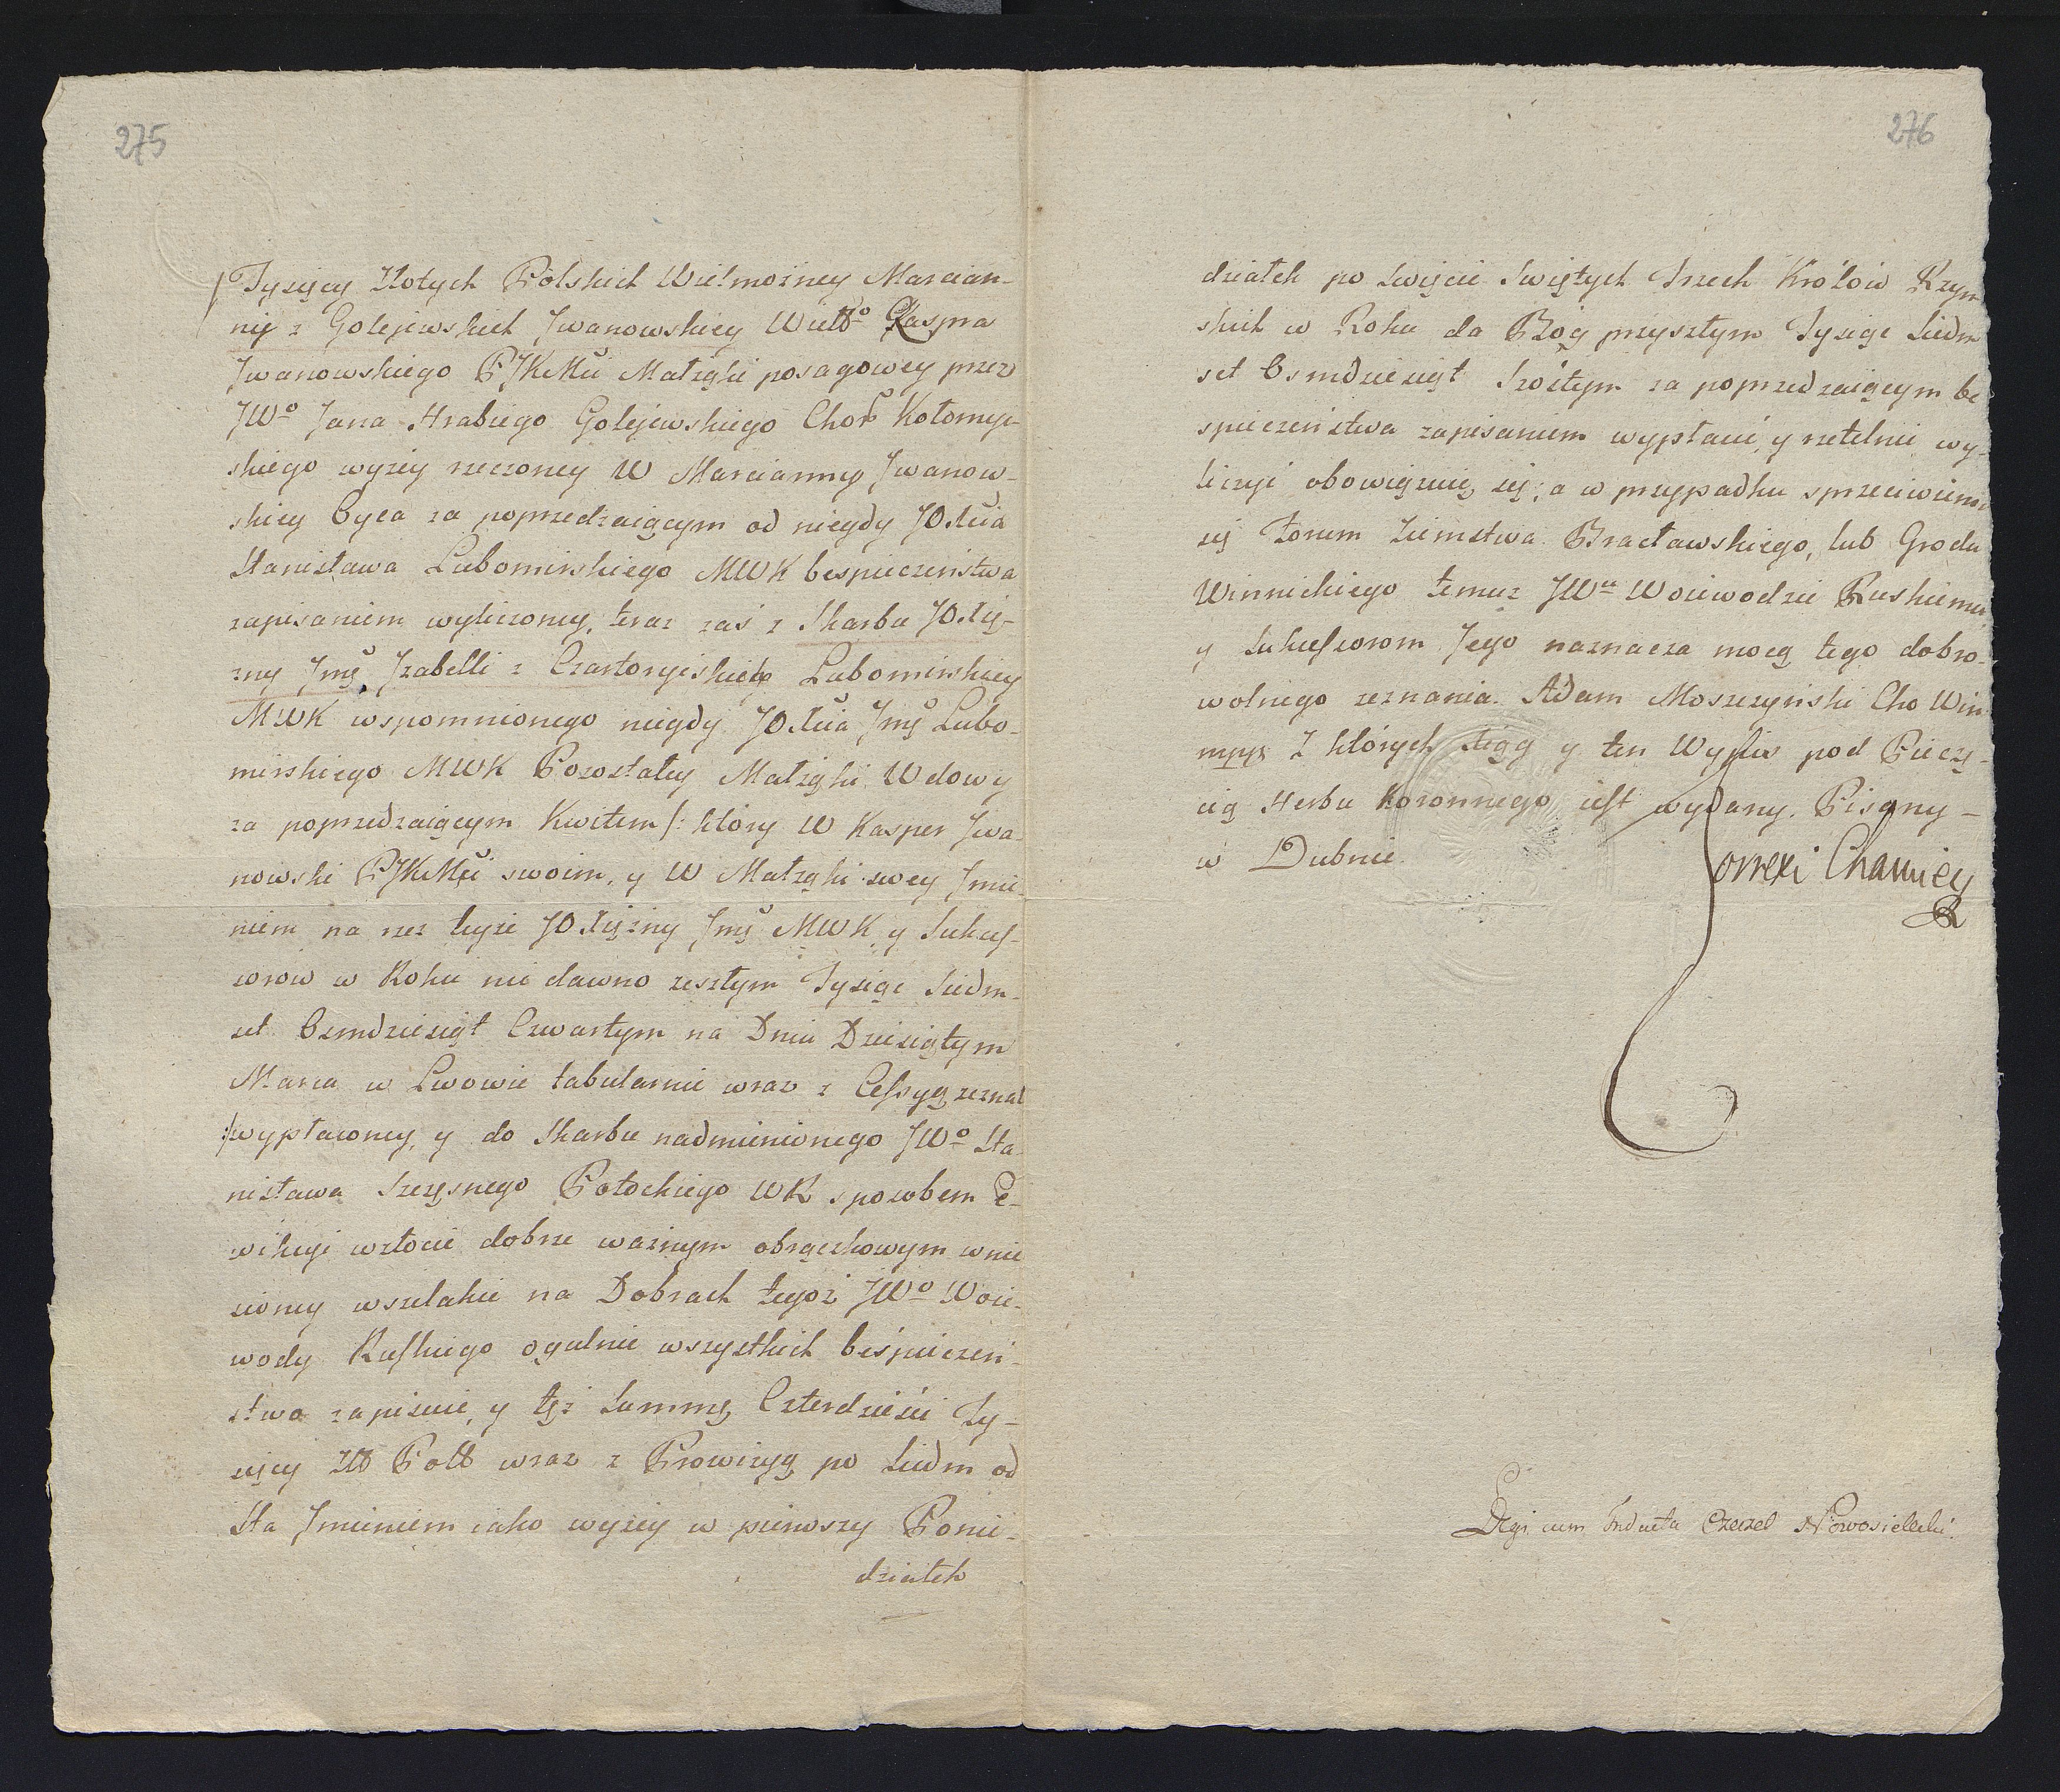 275
Tysięcy Złotych Polskich Wielmożney Marcian-
nij z Golejewskich Jwanowskiey Wielo Kaspra
Jwanowskiego PJKMci Małżąki posagowey przez
JWo Jana Hrabiego Golejewskiego Chor Kołomyi-
skiego wyżey rzeczoney W Marcianny Jwanow-
skiey Oyca za poprzedzaiącym od niegdy JO Xcia
Stanisława Lubomirskiego MWK bespieczeństwa
zapisaniem wyliczoney, teraz zaś z Skarbu JO Xię-
zny Jmę Jzabelli z Czartoryiskich Lubomirskiey
MWK wspomnionego niegdy JO Xcia Jmę Lubo-
mirskiego MWK Pozostałey Małżąki Wdowy
za poprzedzaiącym Kwitem /: który W Kasper Jwa-
nowski PJKMci swoim, y W Małżąki swey Jmie-
niem na rzez teyże JO Xiężny Jmę MWK y Sukces-
sorow w Roku nie dawno zeszłym Tysiąc Siedm-
set Osmdziesiąt Czwartym na Dniu Dziesiątym
Marca w Lwowie tabularnie wraz z Cessyą zeznał
:/ wypłaconey, y do Skarbu nadmienionego JWo Sta-
nisława Szczęsnego Potockiego WR sposobem E-
wikcyi wzłocie dobrze ważnym obrączkowym wnie
sioney wszelakie na Dobrach tegoż JWo Woie-
wody Ruskiego ogulnie wszystkich beśpieczeń-
stwo zapisuie, y tęż Summę Czterdzieści Ty-
sięcy Zło Pol wraz z Prowizyą po Siedm od
Sta Jmieniem iako wyżey w pierwszy Ponie-
działek
276
działek po Swięcie Swiętych Trzech Królów Rzym
skich w Roku da Bóg przyszłym Tysiąc Siedm
set Osmdziesiąt Szóstym za poprzedzaiącym be
spieczeństwa zapisaniem wypłacić, y rzetelnie wy-
liczyć obowięzuię się; a w przypadku sprzeciwieni
się Forum Ziemstwa Bracławskiego, lub Grodu
Winnickiego temuż JWu Woiewodzie Ruskiemu
y Sukcessorom Jego naznacza mocą tego dobro-
wolnego zeznania. Adam Moszczyński Cho Win
mpp. Z których Xiąg y ten Wypis pod Pieczę-
cią Herbu Koronnego iest wydany. Pisany -
w Dubnie.
orrexi Chamiey
R
Legi cum Inducta Czeczel Nowosielecki.